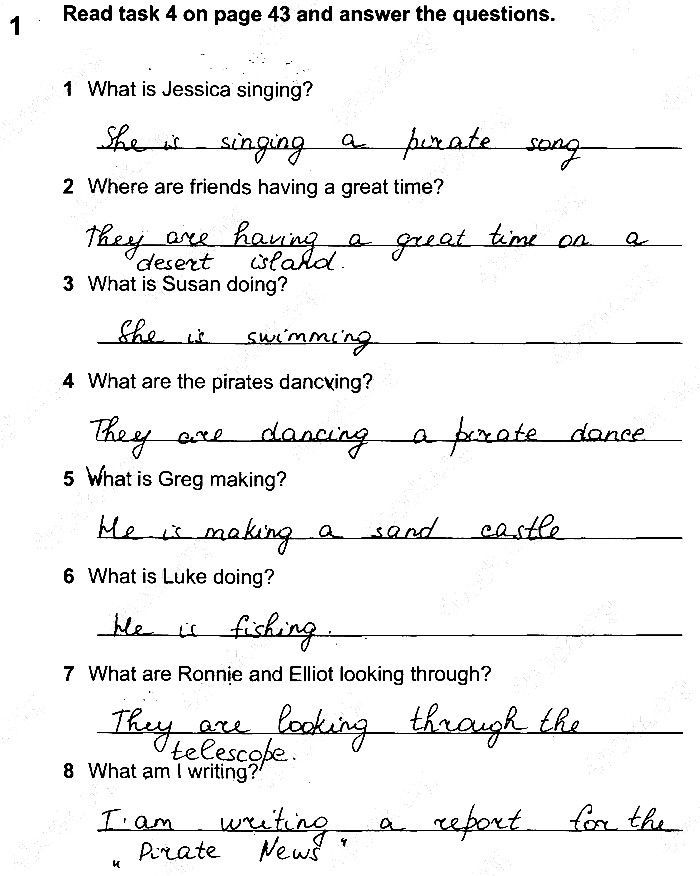 1
Read task 4 on page 43 and answer the questions.
1 What is Jessica singing?
She is singing a pirate song
2 Where are friends having a great time?
They are having a great time on a
desert island.
3 What is Susan doing?
She is swimming
4 What are the pirates dancving?
They are dancing a pirate dance
5 What is Greg making?
He is making a sand castle
6 What is Luke doing?
He is fishing.
7 What are Ronnie and Elliot looking through?
They are looking through the
telescope.
8 What am I writing?
I am writing a report for the
„ Pirate News "